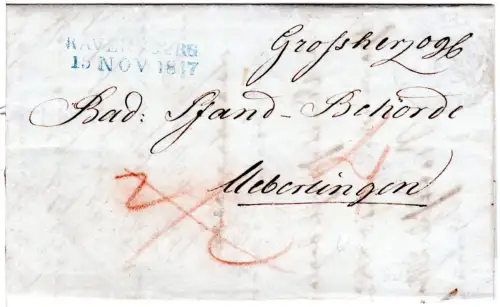 RAVENSBURG
15 NOV 1847
Großherzogl
Bad: Pfand-Behörde
Ueberlingen